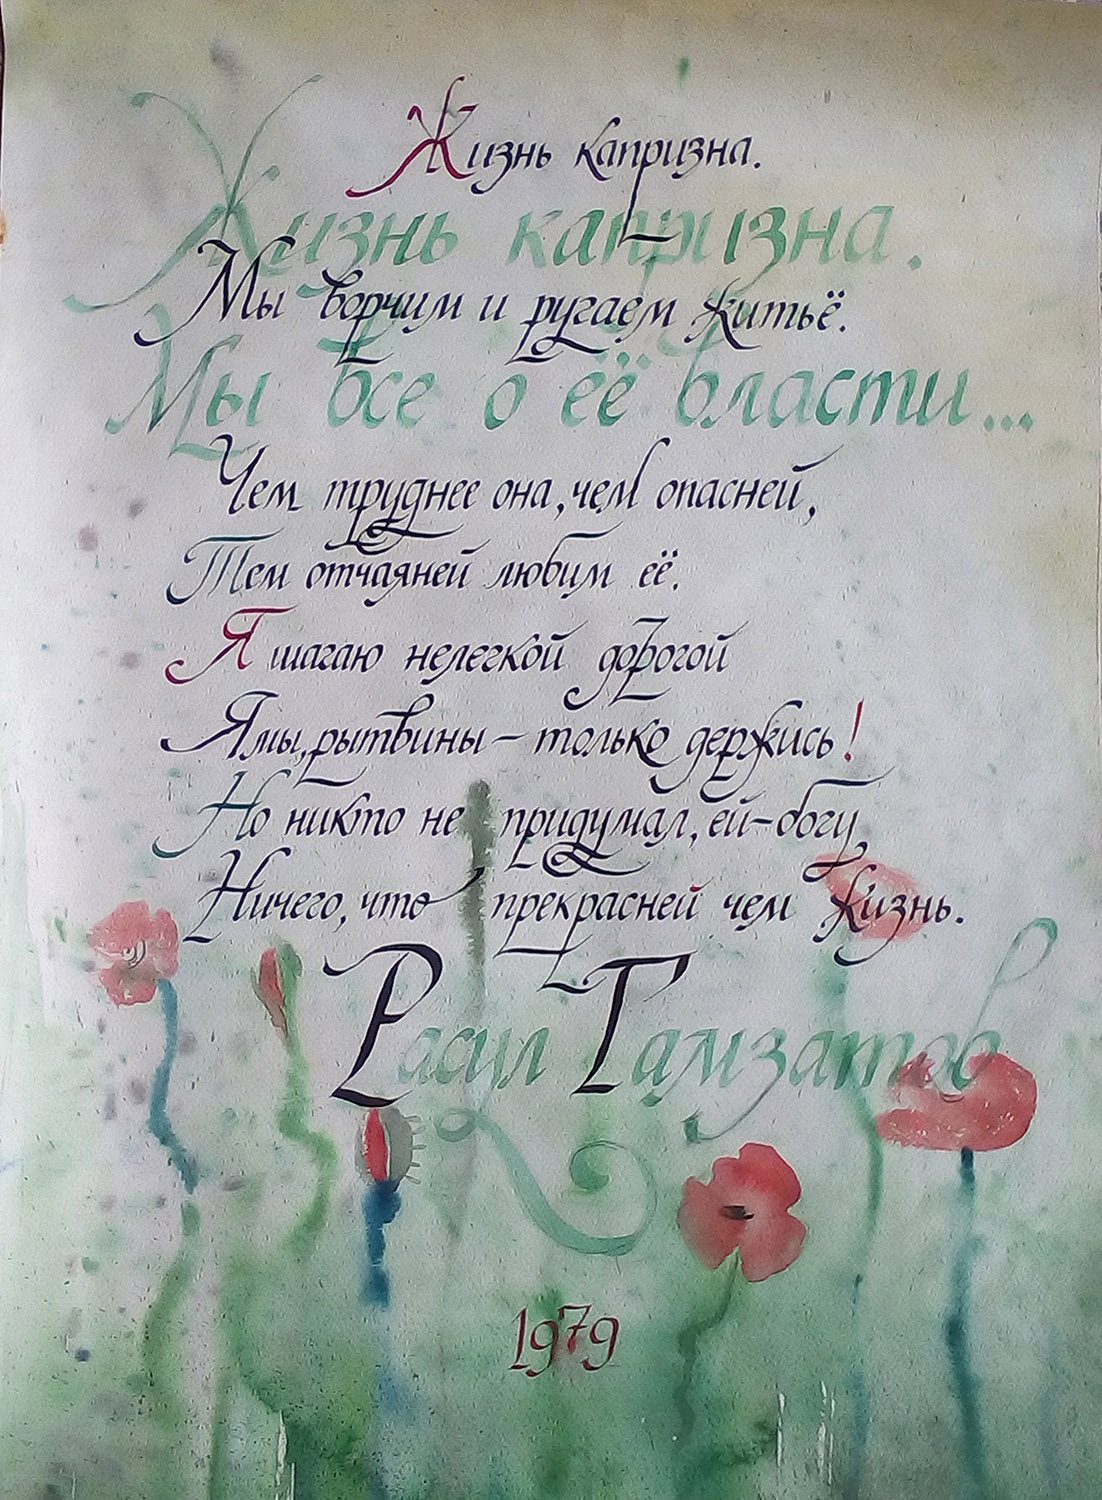 Жизнь капризна.
Жизнь капризна.
Мы ворчим и ругаем житьё.
Мы все в её власти...
Чем труднее она, чем опасней,
Тем отчаяней любим её.
Я шагаю нелегкой дорогой
Ямы, рытвины – только держись!
Но никто не придумал, ей-богу,
Ничего, что прекрасней чем жизнь.
Расул Гамзатов
1979